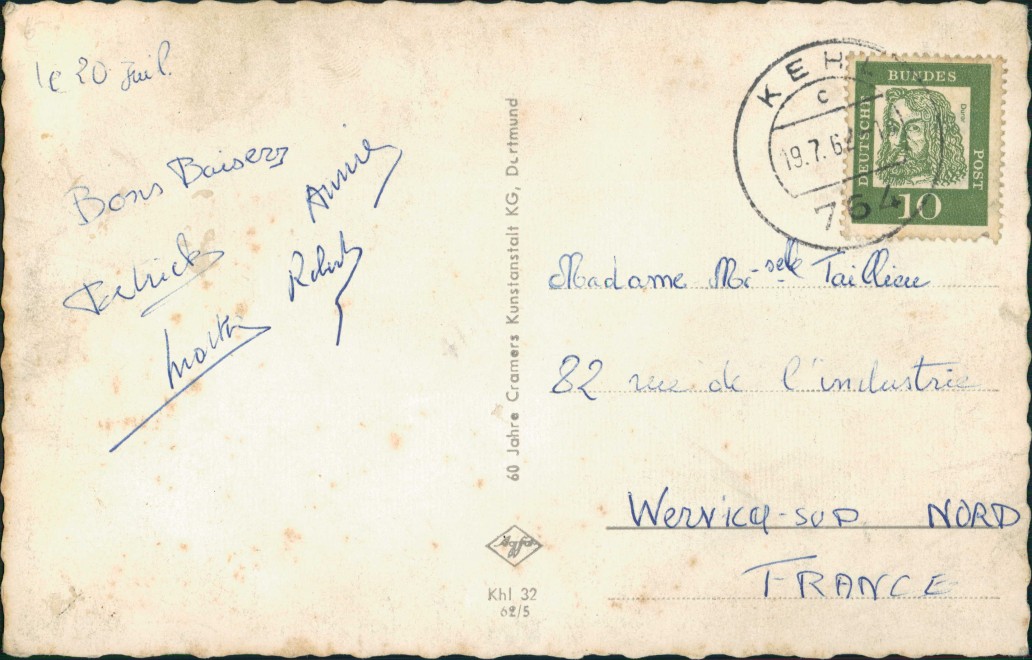 le 20 Juil.
Bons Baisers
Annie
Patrick
Robert
60 Jahre Cramers Kunstanstalt KG, Dortmund
Agfa
Khl 32
62/5
KEHL
c
19.7.62
764
DEUTSCHE
BUNDES
POST
Dürer
10
Madame Mr selle Taillieu
82 rue de l'industrie
Wervicq-sud NORD
FRANCE